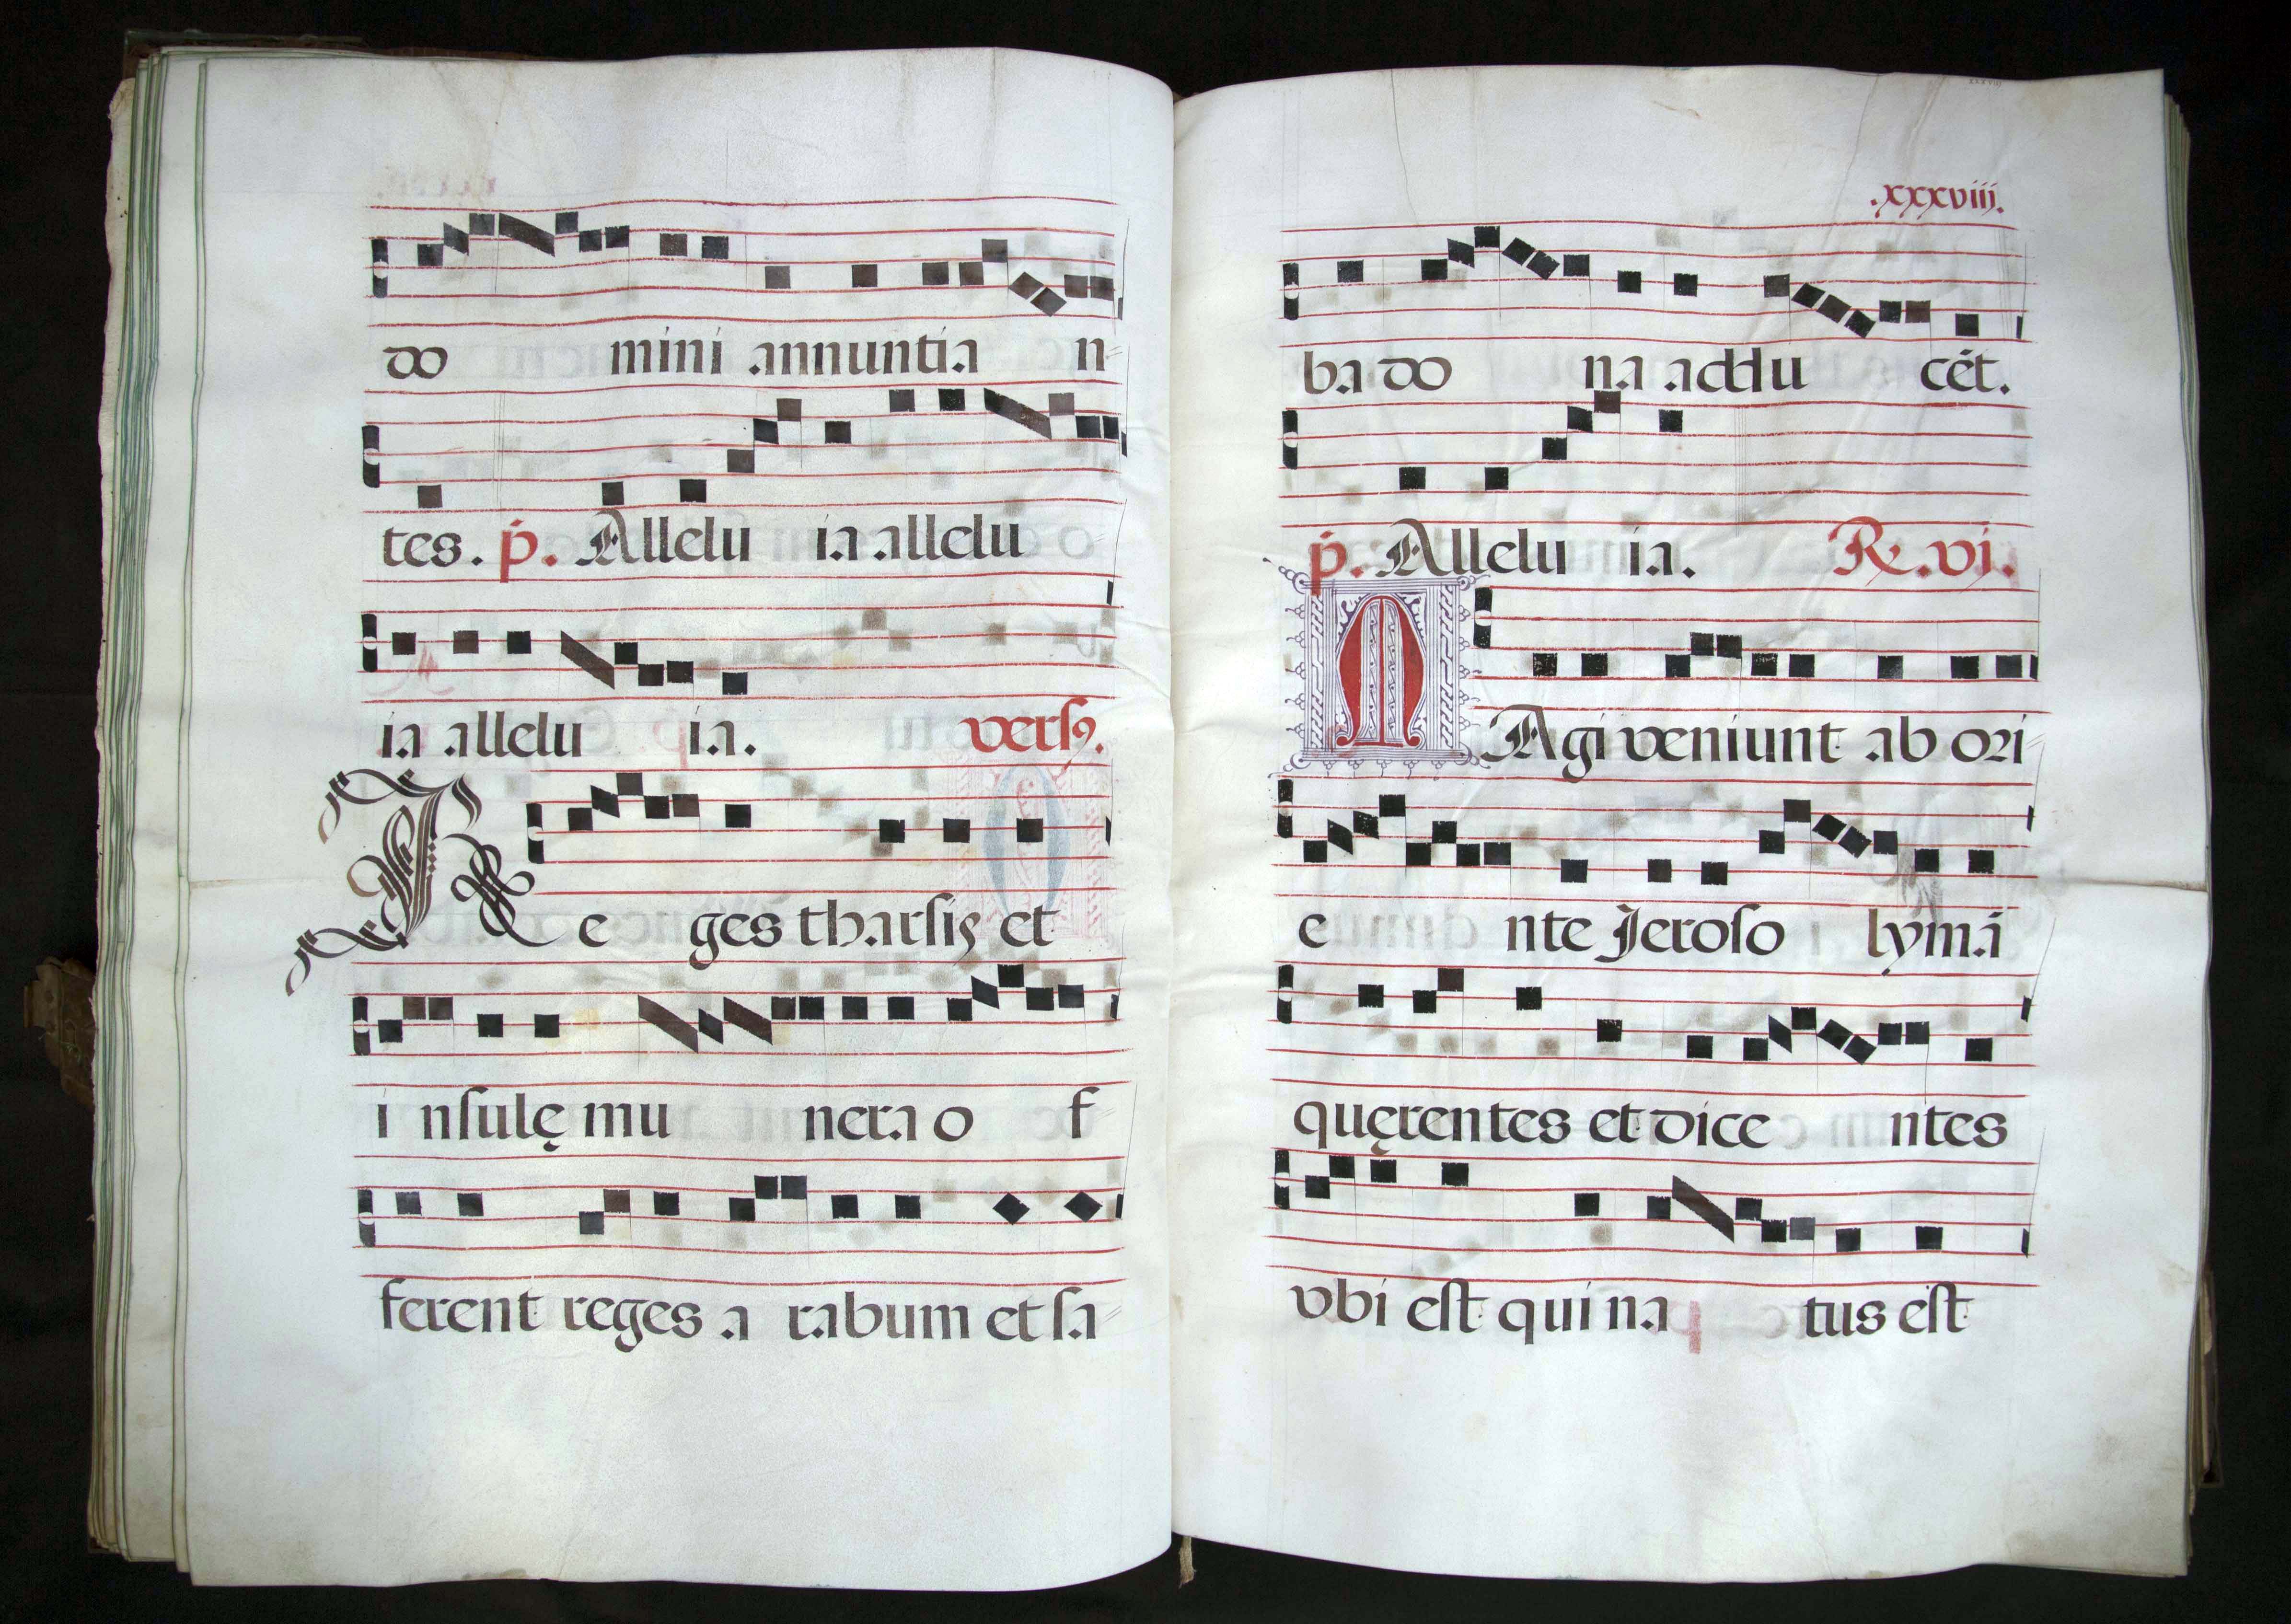 do mini annuntia n
tes. p. Allelu ia allelu
ia allelu ia. versꝰ.
Re ges tharsis et
i nsulę mu nera o f
ferent reges a rabum et sa
.xxxviii.
ba do na addu cēt.
p. Allelu ia. R. vi.
MAgi veniunt ab ori
e nte Jeroso lymā
quęrentes et dice ntes
vbi est qui na tus est